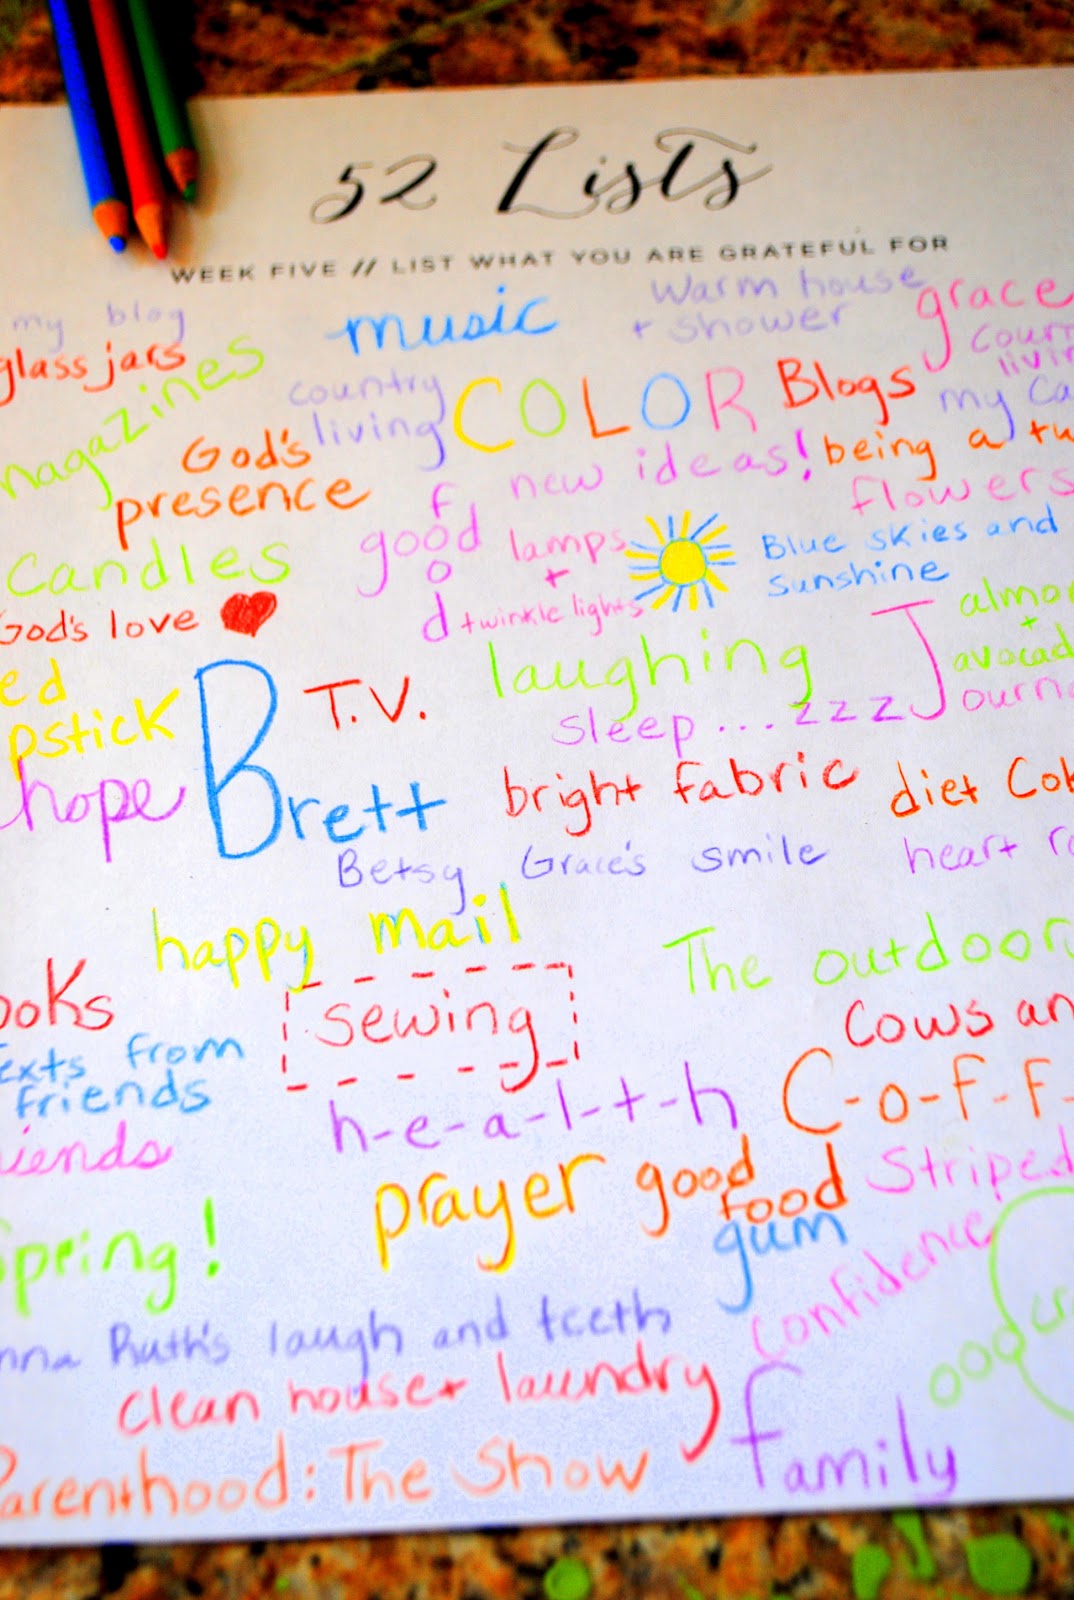 52 Lists
WEEK FIVE // LIST WHAT YOU ARE GRATEFUL FOR
my blog
music
warm house
+ shower
grace
glass jars
magazines
country
living
COLOR
Blogs
my
God's
presence
new ideas!
being a
flowers
candles
good
food
lamps
+
twinkle lights
Blue skies and
sunshine
God's love
laughing
+
T.V.
sleep... zzz
J
hope
Brett
bright fabric
diet
Betsy Grace's smile
heart
happy mail
The
sewing
cows
texts from
friends
h-e-a-l-t-h
C-o-f-f-
prayer
good
food
Striped
gum
Spring!
confidence
Ruth's laugh and teeth
clean house + laundry
family
Parenthood: The Show